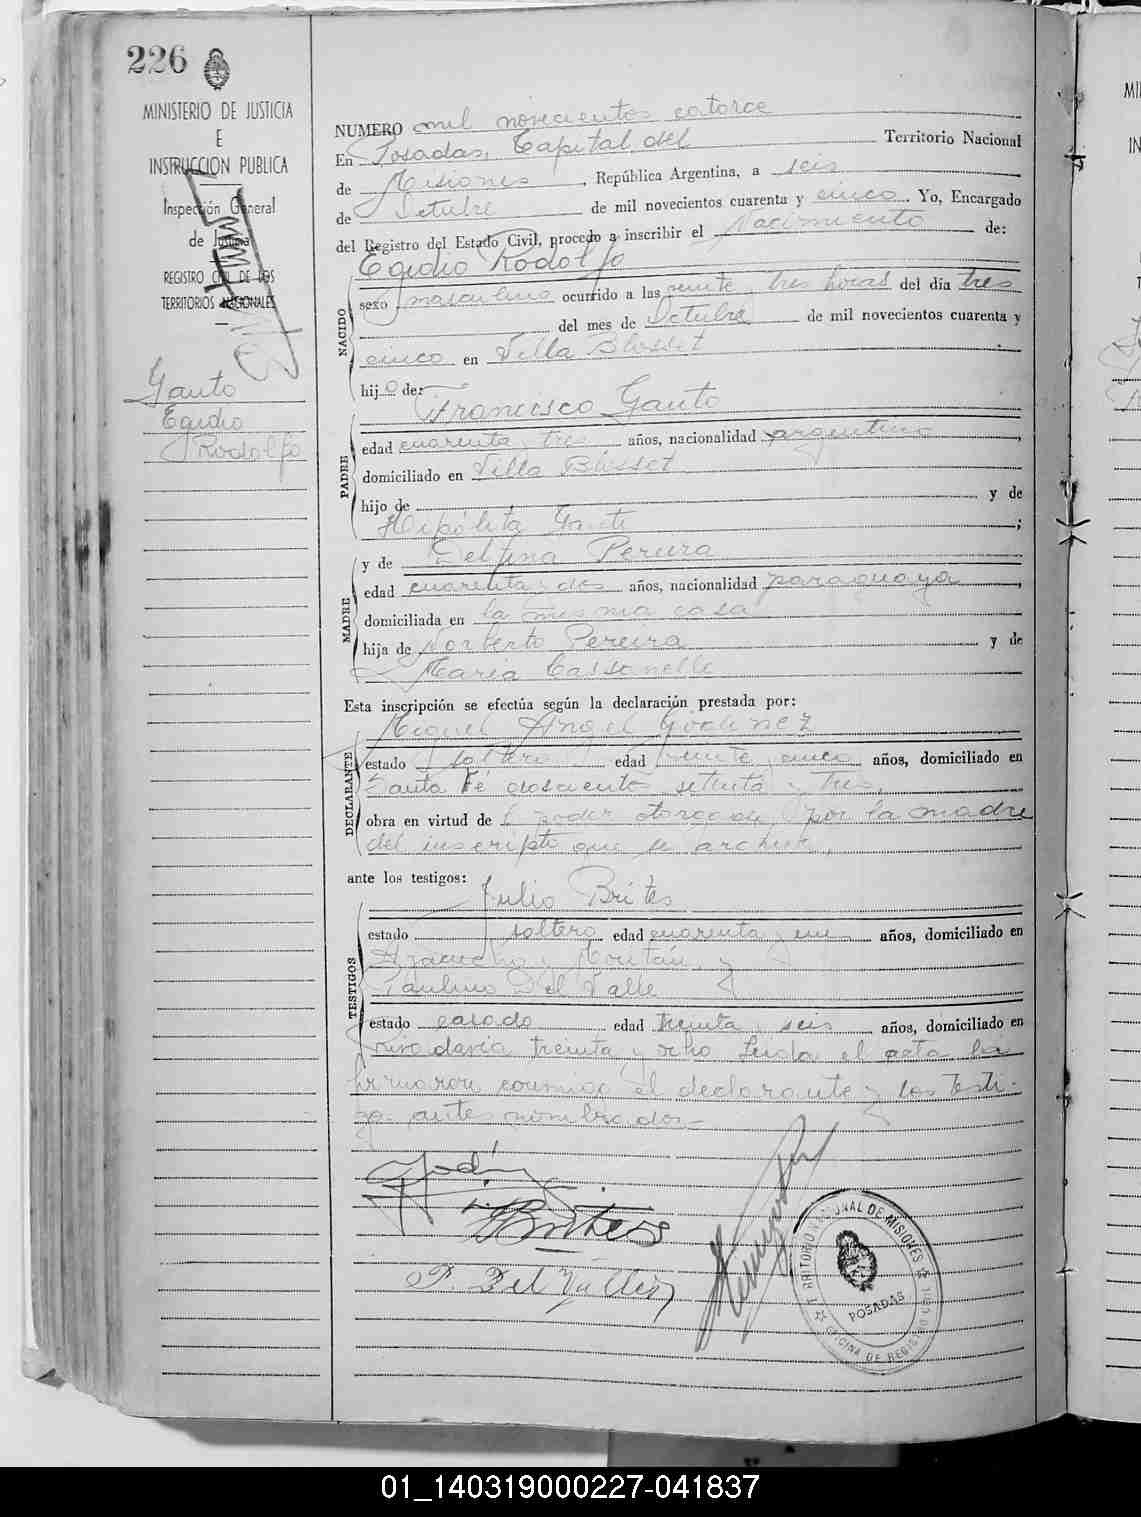 226
MINISTERIO DE JUSTICIA
E
INSTRUCCION PUBLICA
Inspección General
de Justicia
REGISTRO CIVIL DE LOS
TERRITORIOS NACIONALES
Gauto
Egidio
Rodolfo
NUMERO mil novecientos catorce
En Posadas, Capital del Territorio Nacional
de Misiones, República Argentina, a seis
de Octubre de mil novecientos cuarenta y cinco. Yo, Encargado
del Registro del Estado Civil, procedo a inscribir el Nacimiento de:
Egidio Rodolfo
NACIDO
sexo masculino ocurrido a las veinte y tres horas del día tres
del mes de Octubre de mil novecientos cuarenta y
cinco en Villa Blosset
hijo de:
Francisco Gauto
PADRE
edad cuarenta y tres años, nacionalidad argentino,
domiciliado en Villa Blosset
hijo de y de
Hipólita Gauto;
y de Delfina Pereira
MADRE
edad cuarenta y dos años, nacionalidad paraguaya,
domiciliada en la misma casa
hija de Norberto Pereira y de
Maria
Esta inscripción se efectúa según la declaración prestada por:
Miguel Angel Godinez
DECLARANTE
estado soltero edad veinte y cinco años, domiciliado en
Santa Fé doscientos setenta y tres,
obra en virtud de poder otorgado por la madre
del inscripto que se archiva.
ante los testigos:
Julio Brites
TESTIGOS
estado soltero edad cuarenta y un años, domiciliado en
Ayacucho y Roután y
Paulino Del Valle
estado casado edad treinta y seis años, domiciliado en
Rivadavia treinta y ocho Leida el acta la
firmaron conmigo el declarante y los testi-
gos antes nombrados.-
JBrites
P. Del Valle
TERRITORIO NACIONAL DE MISIONES
POSADAS
OFICINA DE REGISTRO
01_140319000227-041837